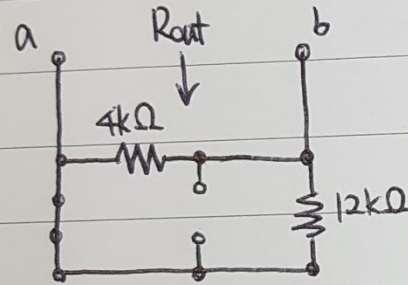 a
Rout
b
4kΩ
12kΩ